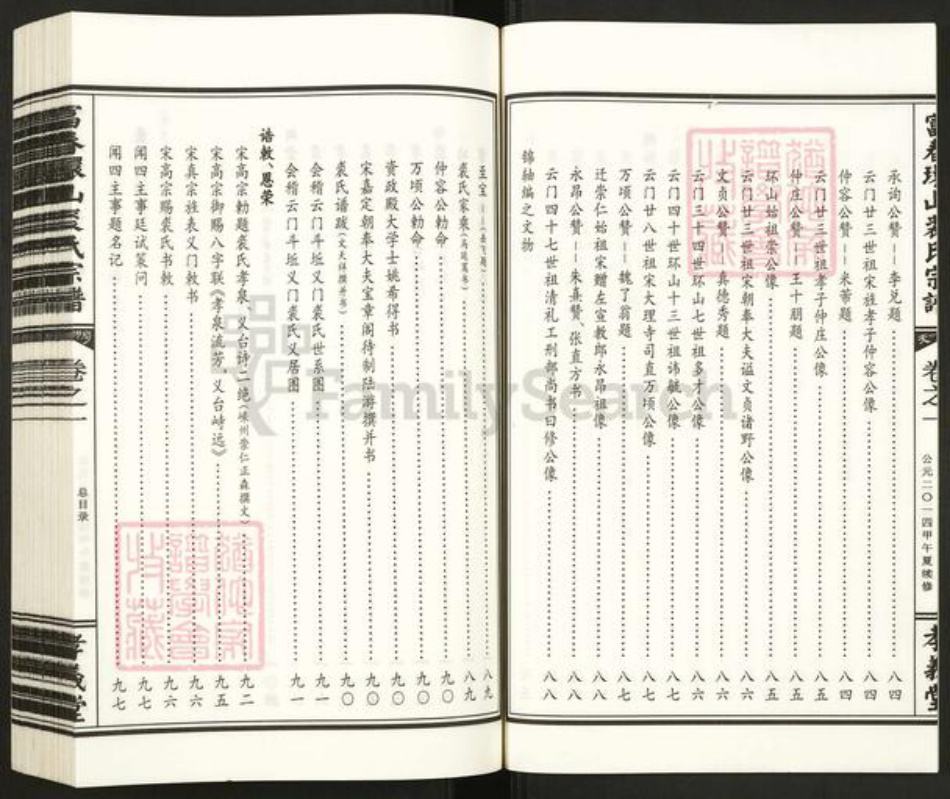 富春环山裘氏宗谱
卷之一
公元二〇一四甲午夏续修
孝义堂
承询公赞——李兑题 八四
云门廿三世祖宋旌孝子仲容公像 八四
仲容公赞——米芾题 八四
云门廿三世祖孝子仲庄公像 八五
仲庄公赞——王十朋题 八五
环山始祖崇公像 八五
云门廿三世祖宋朝奉大夫谥文贞诸野公像 八六
文贞公赞——真德秀题 八六
云门三十四世环山七世祖多才公像 八六
云门四十世环山十三世祖讳毓公像 八七
云门廿八世祖宋大理寺司直万顷公像 八七
万顷公赞——魏了翁题 八七
迁崇仁始祖宋赠左宣教郎永昂祖像 八八
永昂公赞——朱熹赞、张直方书 八八
云门四十七世祖清礼工刑部尚书曰修公像 八八
锦轴编之文物
至宝 八九
裘氏家乘 八九
仲容公勅命 九〇
万顷公勅命 九〇
资政殿大学士姚希得书 九〇
宋嘉定朝奉大夫宝章阁待制陆游撰并书 九〇
裘氏谱跋（文天祥撰并书） 九〇
会稽云门斗坵义门裘氏世系图 九一
会稽云门斗坵义门裘氏义居图 九一
诰敕、恩荣
宋高宗勅题裘氏孝泉、义台诗二绝（嵊州崇仁正森撰文） 九二
宋高宗御赐八字联《孝泉流芳、义台峙远》 九五
宋真宗旌表义门敕书 九六
宋高宗赐裘氏书敕 九六
闻四主事廷试策问 九七
闻四主事题名记 九七
富春环山裘氏宗谱
卷之一
总目录
孝义堂